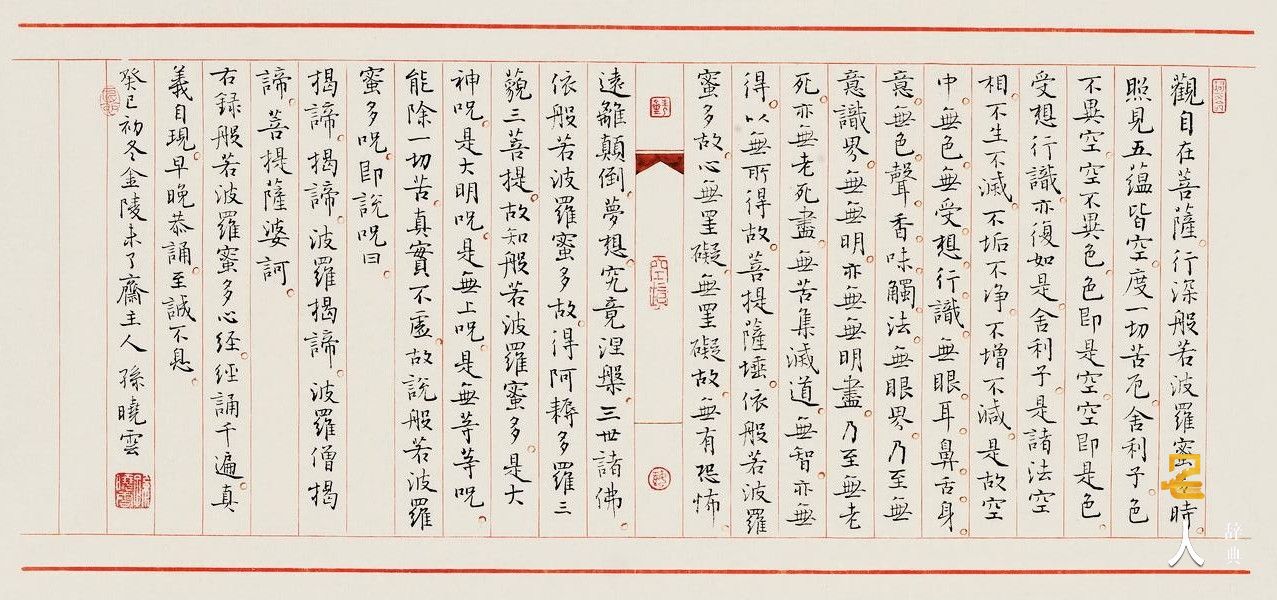 觀自在菩薩行深般若波羅密時
照見五蘊皆空度一切苦厄舍利子色
不異空空不異色色即是空空即是色
受想行識亦復如是舍利子是諸法空
相不生不滅不垢不净不增不減是故空
中無色無受想行識無眼耳鼻舌身
意無色聲香味觸法無眼界乃至無
意識界無無明亦無無明盡乃至無老
死亦無老死盡無苦集滅道無智亦無
得以無所得故菩提薩埵依般若波羅
蜜多故心無罣礙無罣礙故無有恐怖
遠離顛倒夢想究竟涅槃三世諸佛
依般若波羅蜜多故得阿耨多羅三
藐三菩提故知般若波羅蜜多是大
神咒是大明咒是無上咒是無等等咒
能除一切苦真實不虛故說般若波羅
蜜多咒即說咒曰
揭諦揭諦波羅揭諦波羅僧揭
諦菩提薩婆訶
右録般若波羅蜜多心經經誦千遍真
義自現早晚恭誦至誠不息
癸巳初冬金陵未了齋主人孫曉雲
名人
辞典